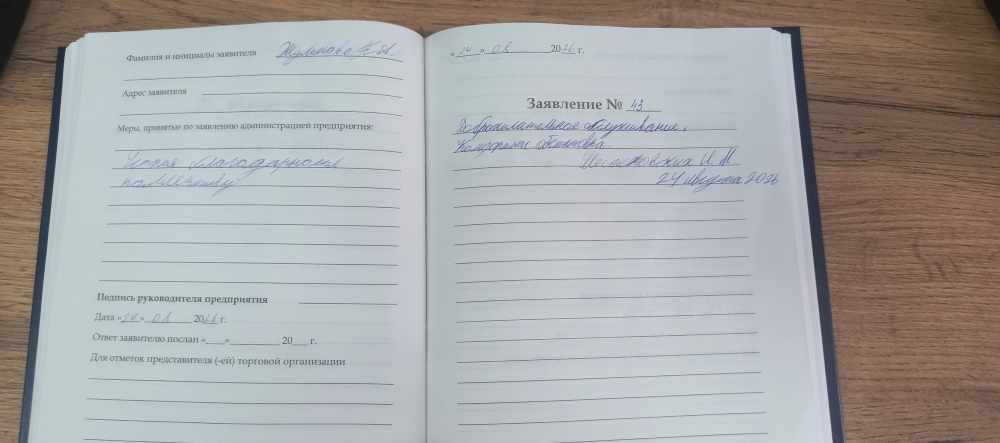 Фамилия и инициалы заявителя
Адрес заявителя
Меры, принятые по заявлению администрацией предприятия:
благодарность
Подпись руководителя предприятия
Дата «24» 08 2026 г.
Ответ заявителю послан «    »            20    г.
Для отметок представителя (-ей) торговой организации
«24» 08 2026 г.
Заявление № 43
Доброжелательное обслуживание.
Комфортная обстановка
24 августа 2026